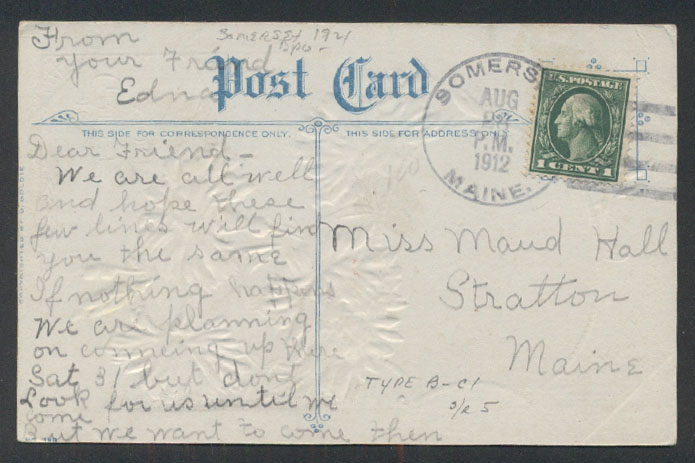 From
your Friend
Edna
SOMERSET 1921
DPO -
Post Card
THIS SIDE FOR CORRESPONDENCE ONLY.
THIS SIDE FOR ADDRESS ONLY
SOMERS
AUG
P.M.
1912
MAINE.
U.S. POSTAGE
1 CENT 1
Dear Friend -
We are all well
and hope these
few lines will fin
you the same
If nothing happens
We are planning
on comeing up there
Sat 31 but dont
Look for us until we
come
But we want to come then
Miss Maud Hall
Stratton
Maine
TYPE B-C1
S/R 5